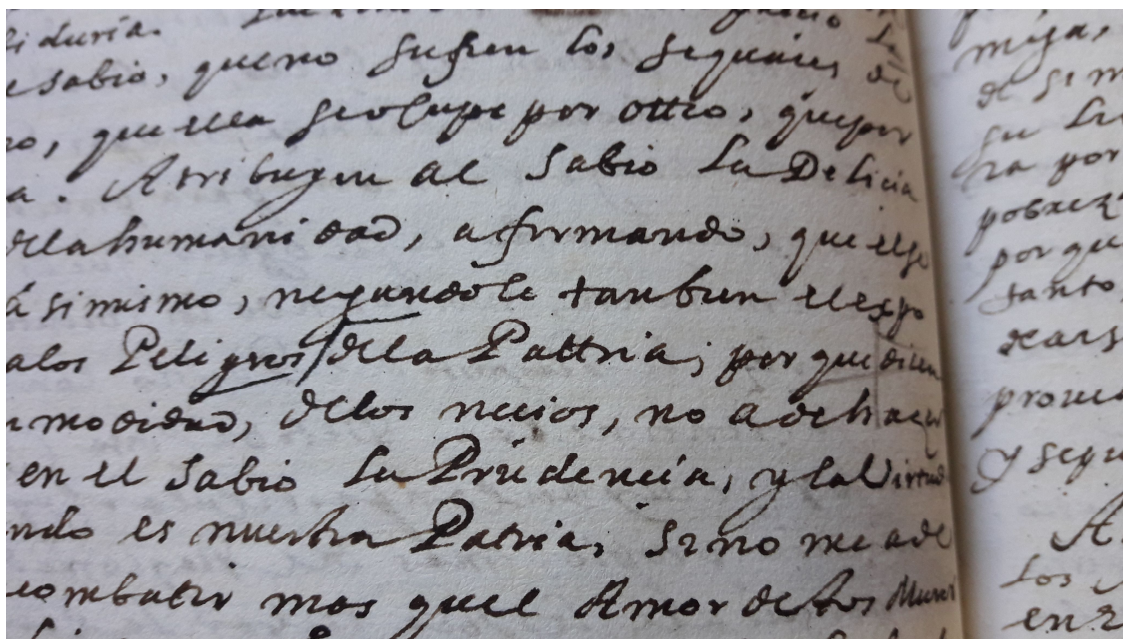 iduria.
sabio, que no sufren los sequaies de
no, que ella se olupe por ottro, que por
a. Atribuyen al Sabio La Delicia
dela humanidad, afirmando, que else
á simismo, negandole tanbien el expo
alos Peligros dela Pattria, por que dicen
modidad, delos necios, no adehaçer
en el Sabio La Prudencia, y la Virtud
ndo es nuestra Patria, si no me ade
combatir mas quel Amor de los
miga,
de si m
su Li
ra por
pobrez
por que
santo,
dears
y segu
A
Los
en